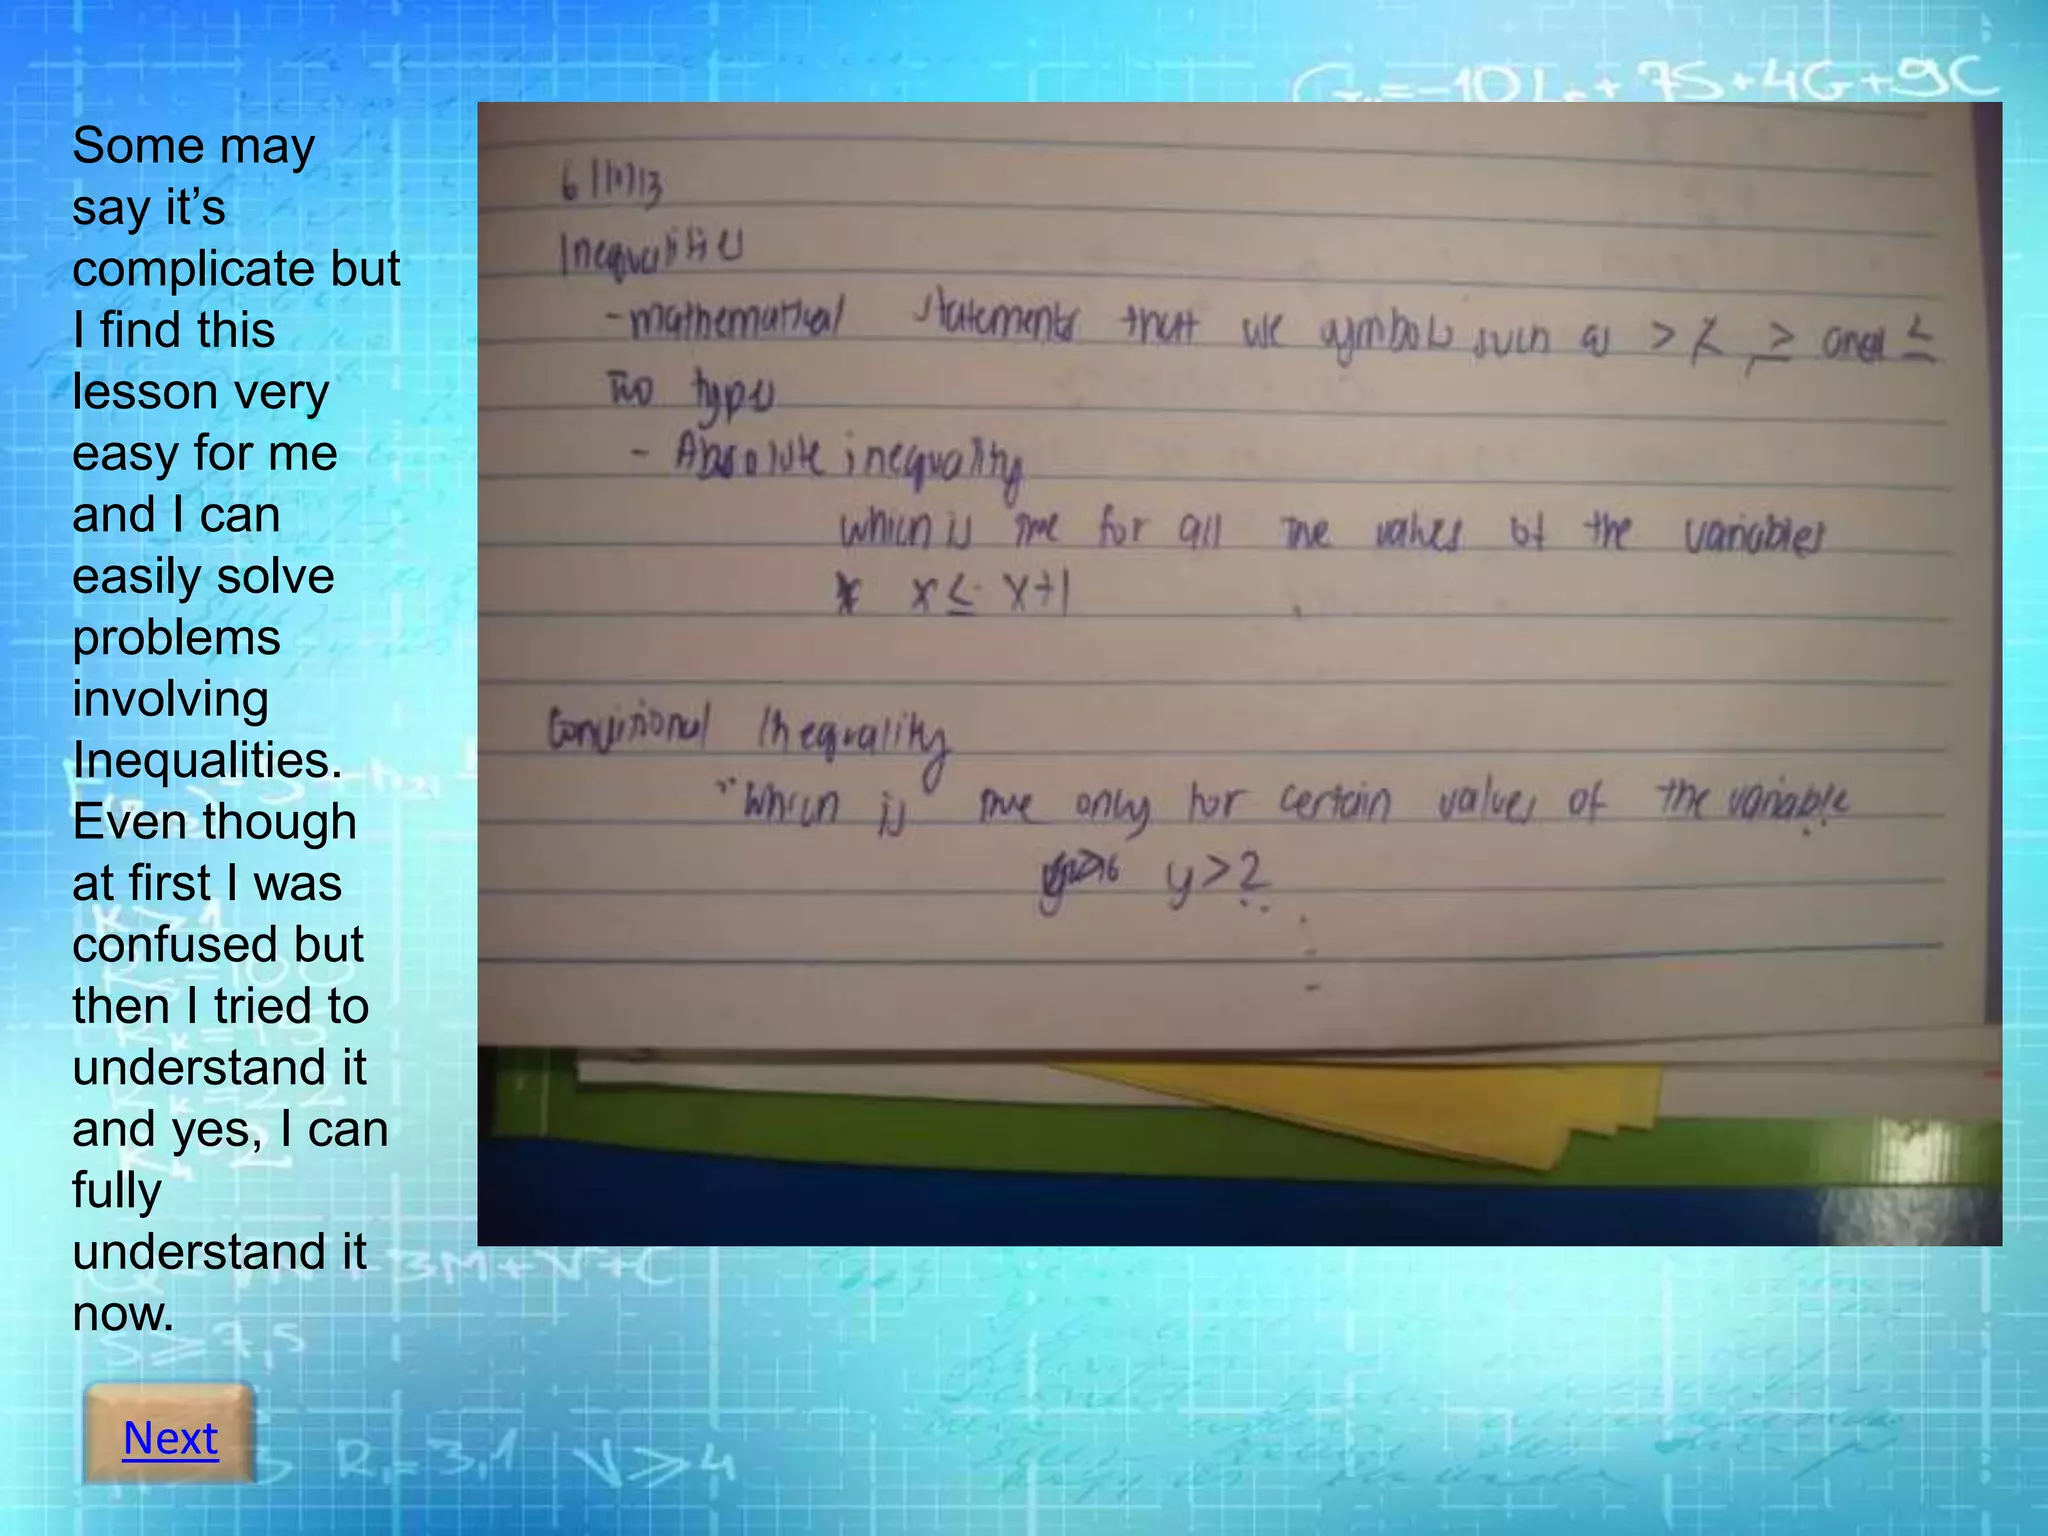 Some may
say it’s
complicate but
I find this
lesson very
easy for me
and I can
easily solve
problems
involving
Inequalities.
Even though
at first I was
confused but
then I tried to
understand it
and yes, I can
fully
understand it
now.
Next
Inequalities
- mathematical statements that use symbols such as > <, ≥ and ≤
Two types
- Absolute inequality
which is true for all the values of the variables
* x ≤ x+1
Conditional Inequality
"which is true only for certain values of the variable
y>2
= -10L + 7S+4G+9C
3M+V+C
S≥7,5
R = 3,1 V≥4